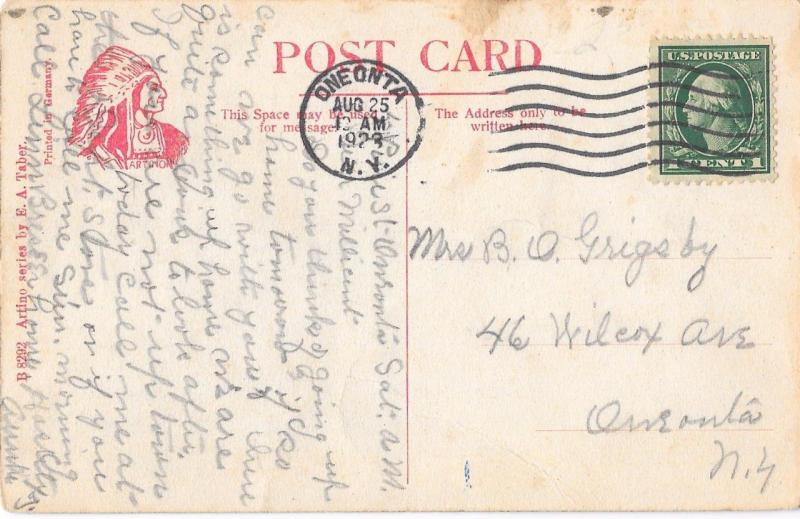 POST CARD
This Space may be used
for message.
The Address only to be
written here.
ONEONTA
AUG 25
AM
N.Y.
U.S. POSTAGE
1 CENT 1
ARTINO
Mrs B. O. Grigsby
46 Wilcox Ave
Oneonta
N.Y
Oneonta Sat. A.M.
Millicent
Do you think of going up
home tomorrow if so
can we go with you? There
is something of homes we are
quite a about to look after.
If you are not up town
today call me at
store or if you
call me Sun. morning
Call
B 8292 Artino series by E. A. Taber.
Printed in Germany.